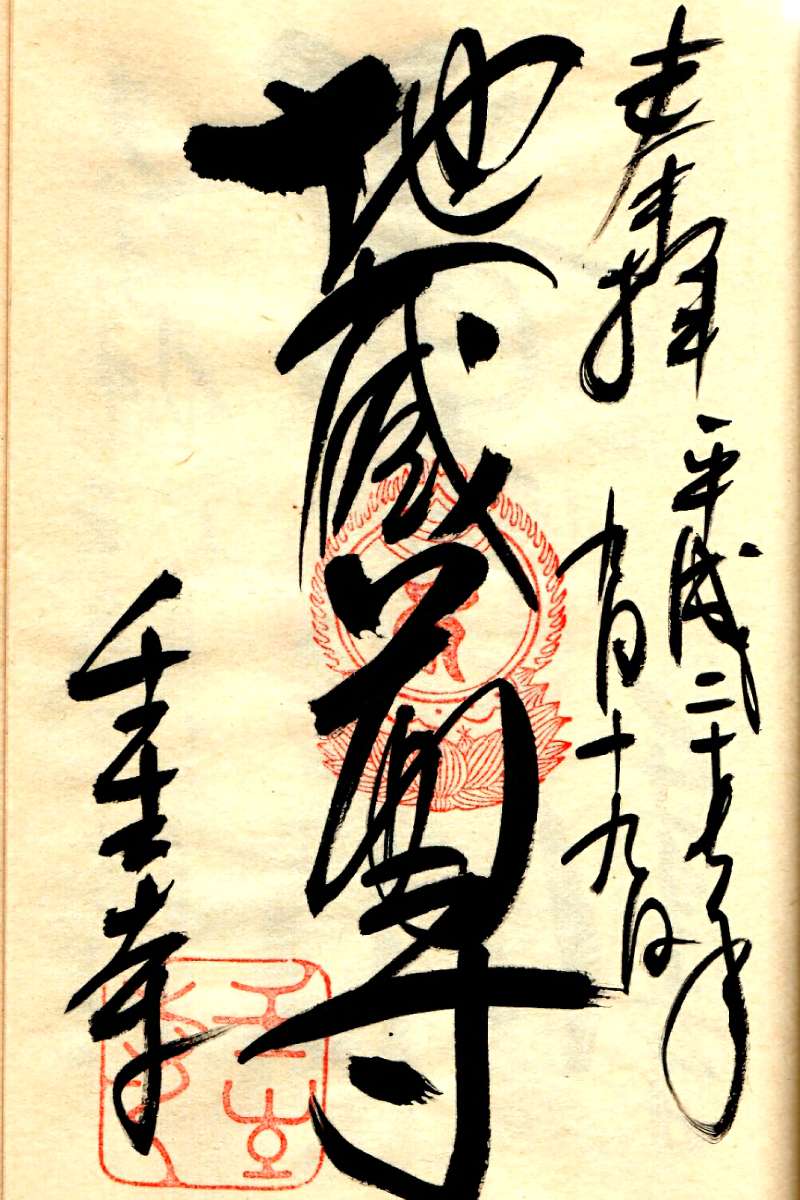 奉拝
平成二十七年
九月十九日
地蔵尊
壬生寺